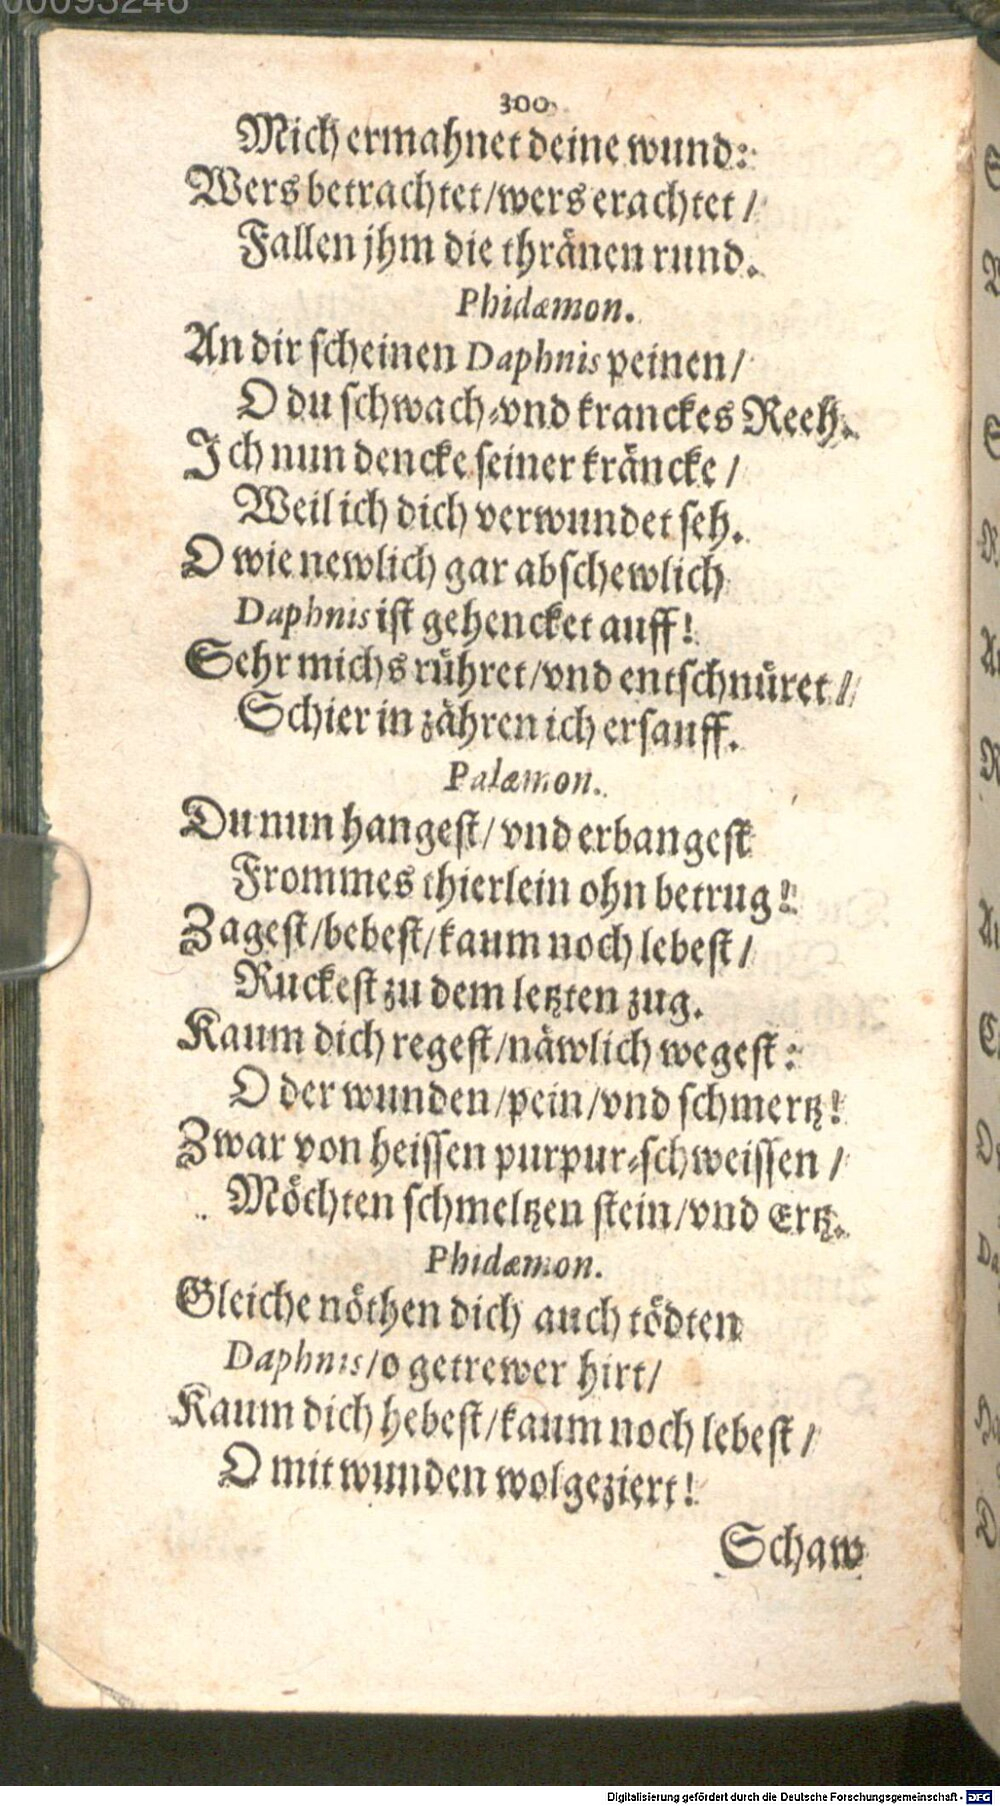 00095246
300
Mich ermahnet deine wund:
Wers betrachtet/wers erachtet/
Fallen jhm die thränen rund.
Phidæmon.
An dir scheinen Daphnis peinen/
O du schwach-vnd kranckes Reeh.
Ich nun dencke seiner kräncke/
Weil ich dich verwundet seh.
O wie newlich gar abschewlich
Daphnis ist gehencket auff!
Sehr michs rühret/vnd entschnüret/
Schier in zähren ich ersauff.
Palæmon.
Du nun hangest/vnd erbangest
Frommes thierlein ohn betrug!
Zagest/bebest/kaum noch lebest/
Ruckest zu dem letzten zug.
Kaum dich regest/näwlich wegest:
O der wunden/pein/vnd schmertz!
Zwar von heissen purpur-schweissen/
Möchten schmeltzen stein/vnd Ertz.
Phidæmon.
Gleiche nöthen dich auch tödten
Daphnis/o getrewer hirt/
Kaum dich hebest/kaum noch lebest/
O mit wunden wolgeziert!
Schaw
Digitalisierung gefördert durch die Deutsche Forschungsgemeinschaft - DFG